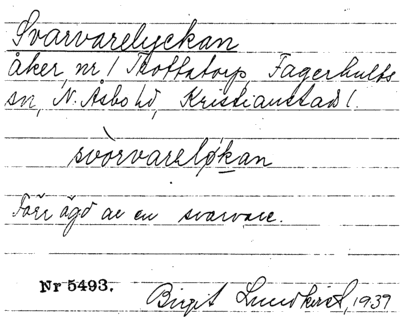 Svarvarelyckan
åker, nr 1 Trottatorp, Fagerhults
sn, N. Asbo hd, Kristianstad l.
svòrvareløkan
Förr ägd av en svarvare.
Nr 5493.
Birgit Lundkvist, 1937